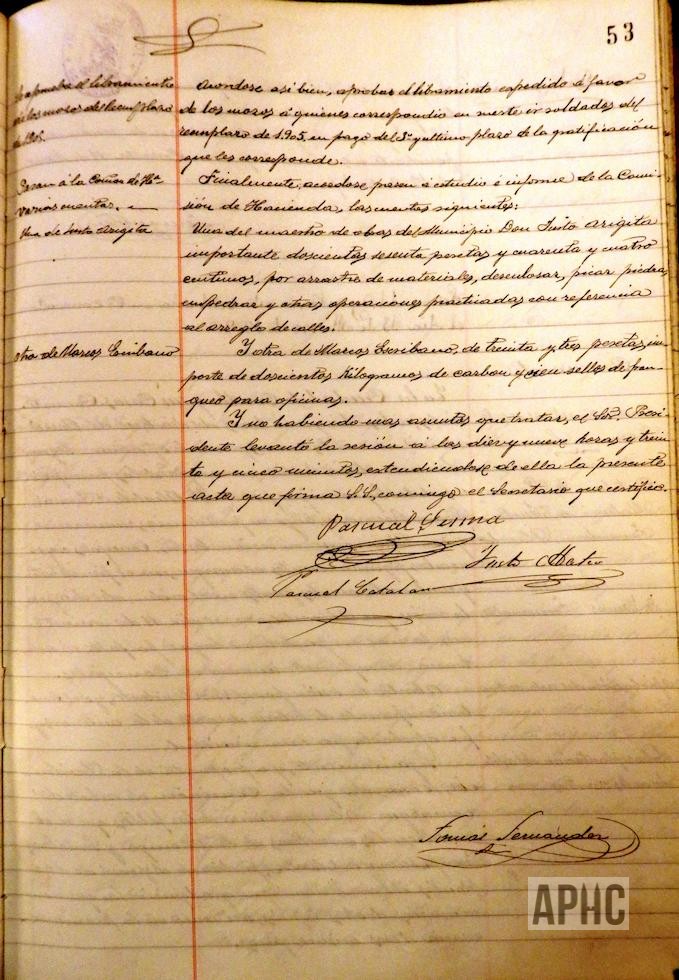 53
Se aprueba el libramiento
de los mozos del Reemplazo
de 1905.
Acordose asi bien, aprobar el libramiento expedido á favor
de los mozos á quienes correspondio en suerte ir soldados del
reemplazo de 1.905, en pago del 3º y ultimo plazo de la gratificación
que les corresponde.
Pasan á la Comon de Hda
varias cuentas,
Una de Justo Arigita
Finalmente, acordose pasen á estudio é informe de la Comi-
sión de Hacienda, las cuentas siguientes:
Una del maestro de obras del Municipio Don Justo Arigita
importante doscientas sesenta pesetas y cuarenta y cuatro
centimos, por arrastre de materiales, desenlosar, picar piedra,
empedrar y otras operaciones practicadas con referencia
al arreglo de calles.
Otra de Marcos Escribano
Y otra de Marcos Escribano, de treinta y tres pesetas, im-
porte de doscientos Kilogramos de carbon y cien sellos de fran-
queo para oficinas.
Y no habiendo mas asuntos que tratar, el Sor. Presi-
dente levantó la sesión á las diez y nueve horas y trein-
ta y cinco minutos, extendiendose de ella la presente
acta que firma S.S., conmigo el Secretario que certifico.
Pascual Lerma
Justo Mateo
Pascual Catalan
Tomás Fernández
APHC